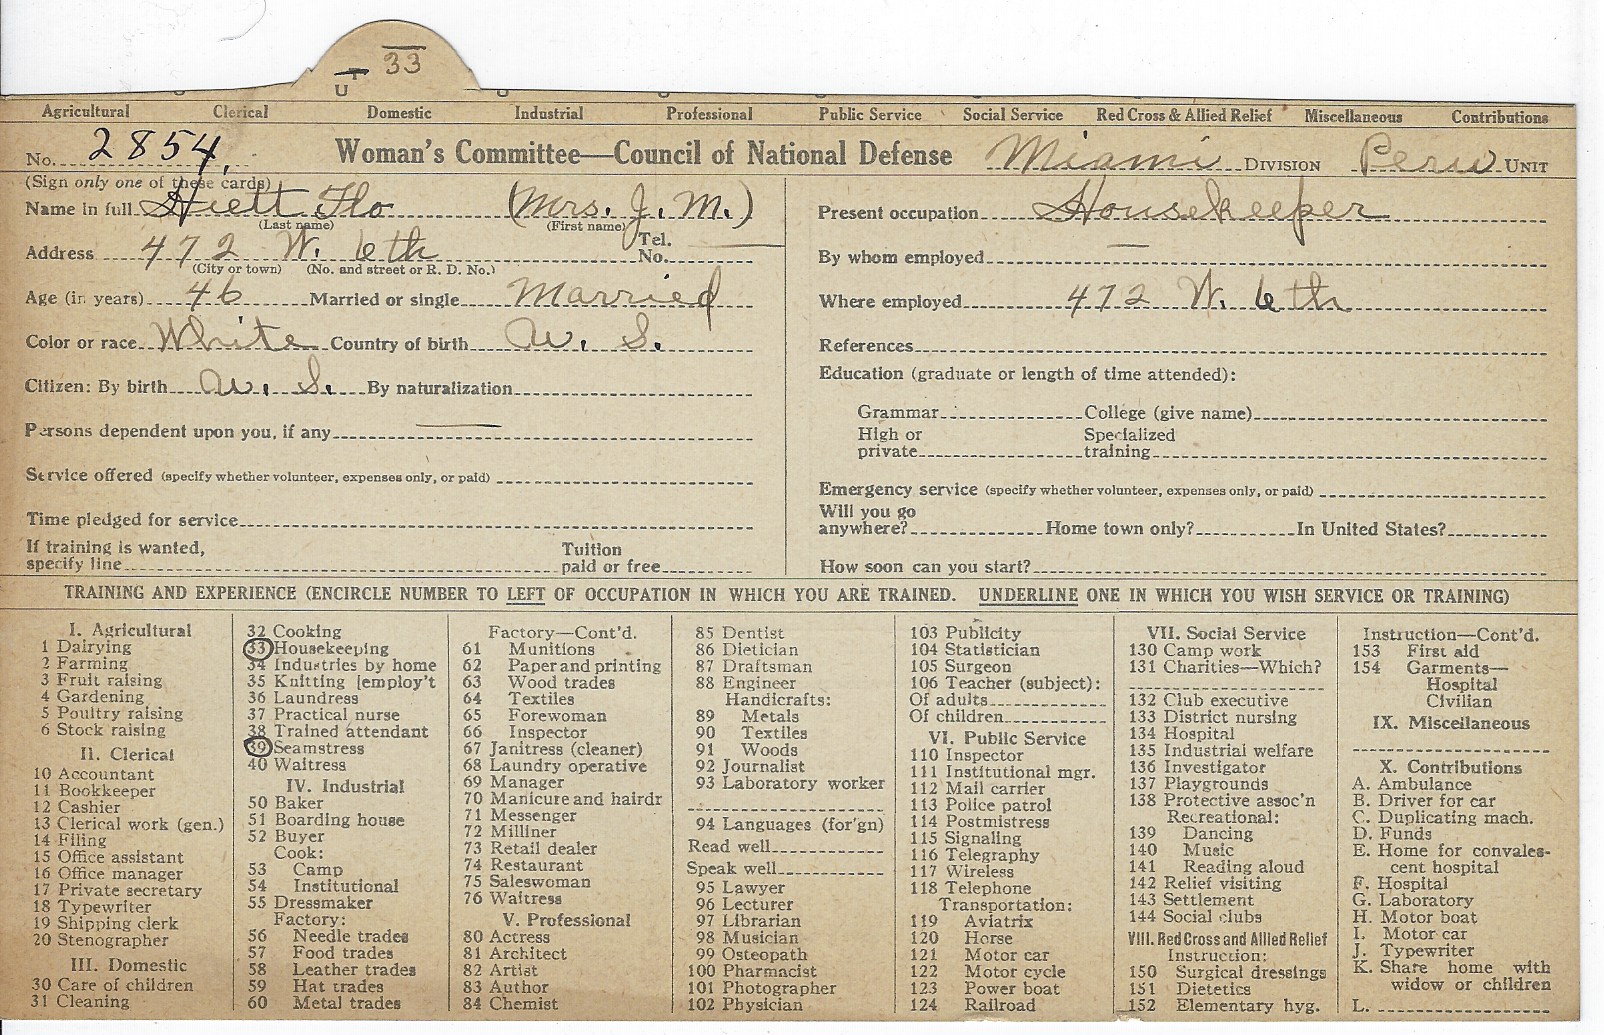 33
U
Agricultural Clerical Domestic Industrial Professional Public Service Social Service Red Cross & Allied Relief Miscellaneous Contributions
No. 2854. Woman's Committee—Council of National Defense Miami DIVISION Peru UNIT
(Sign only one of these cards)
Name in full Hiett Flo (Mrs. J. M.)
(Last name) (First name)
Address 472 W. 6th Tel. No.
(City or town) (No. and street or R. D. No.)
Age (in years) 46 Married or single Married
Color or race White Country of birth U. S.
Citizen: By birth U. S. By naturalization
Persons dependent upon you, if any
Service offered (specify whether volunteer, expenses only, or paid)
Time pledged for service
If training is wanted,
specify line Tuition paid or free
Present occupation Housekeeper
By whom employed
Where employed 472 W. 6th
References
Education (graduate or length of time attended):
Grammar College (give name)
High or private Specialized training
Emergency service (specify whether volunteer, expenses only, or paid)
Will you go
anywhere? Home town only? In United States?
How soon can you start?
TRAINING AND EXPERIENCE (ENCIRCLE NUMBER TO LEFT OF OCCUPATION IN WHICH YOU ARE TRAINED. UNDERLINE ONE IN WHICH YOU WISH SERVICE OR TRAINING)
I. Agricultural
1 Dairying
2 Farming
3 Fruit raising
4 Gardening
5 Poultry raising
6 Stock raising
II. Clerical
10 Accountant
11 Bookkeeper
12 Cashier
13 Clerical work (gen.)
14 Filing
15 Office assistant
16 Office manager
17 Private secretary
18 Typewriter
19 Shipping clerk
20 Stenographer
III. Domestic
30 Care of children
31 Cleaning
32 Cooking
33 Housekeeping
34 Industries by home
35 Knitting [employ't
36 Laundress
37 Practical nurse
38 Trained attendant
39 Seamstress
40 Waitress
IV. Industrial
50 Baker
51 Boarding house
52 Buyer
Cook:
53 Camp
54 Institutional
55 Dressmaker
Factory:
56 Needle trades
57 Food trades
58 Leather trades
59 Hat trades
60 Metal trades
Factory—Cont'd.
61 Munitions
62 Paper and printing
63 Wood trades
64 Textiles
65 Forewoman
66 Inspector
67 Janitress (cleaner)
68 Laundry operative
69 Manager
70 Manicure and hairdr
71 Messenger
72 Milliner
73 Retail dealer
74 Restaurant
75 Saleswoman
76 Waitress
V. Professional
80 Actress
81 Architect
82 Artist
83 Author
84 Chemist
85 Dentist
86 Dietician
87 Draftsman
88 Engineer
Handicrafts:
89 Metals
90 Textiles
91 Woods
92 Journalist
93 Laboratory worker
94 Languages (for'gn)
Read well
Speak well
95 Lawyer
96 Lecturer
97 Librarian
98 Musician
99 Osteopath
100 Pharmacist
101 Photographer
102 Physician
103 Publicity
104 Statistician
105 Surgeon
106 Teacher (subject):
Of adults
Of children
VI. Public Service
110 Inspector
111 Institutional mgr.
112 Mail carrier
113 Police patrol
114 Postmistress
115 Signaling
116 Telegraphy
117 Wireless
118 Telephone
Transportation:
119 Aviatrix
120 Horse
121 Motor car
122 Motor cycle
123 Power boat
124 Railroad
VII. Social Service
130 Camp work
131 Charities—Which?
132 Club executive
133 District nursing
134 Hospital
135 Industrial welfare
136 Investigator
137 Playgrounds
138 Protective assoc'n
Recreational:
139 Dancing
140 Music
141 Reading aloud
142 Relief visiting
143 Settlement
144 Social clubs
VIII. Red Cross and Allied Relief
Instruction:
150 Surgical dressings
151 Dietetics
152 Elementary hyg.
Instruction—Cont'd.
153 First aid
154 Garments—
Hospital
Civilian
IX. Miscellaneous
X. Contributions
A. Ambulance
B. Driver for car
C. Duplicating mach.
D. Funds
E. Home for convales-
cent hospital
F. Hospital
G. Laboratory
H. Motor boat
I. Motor car
J. Typewriter
K. Share home with
widow or children
L.